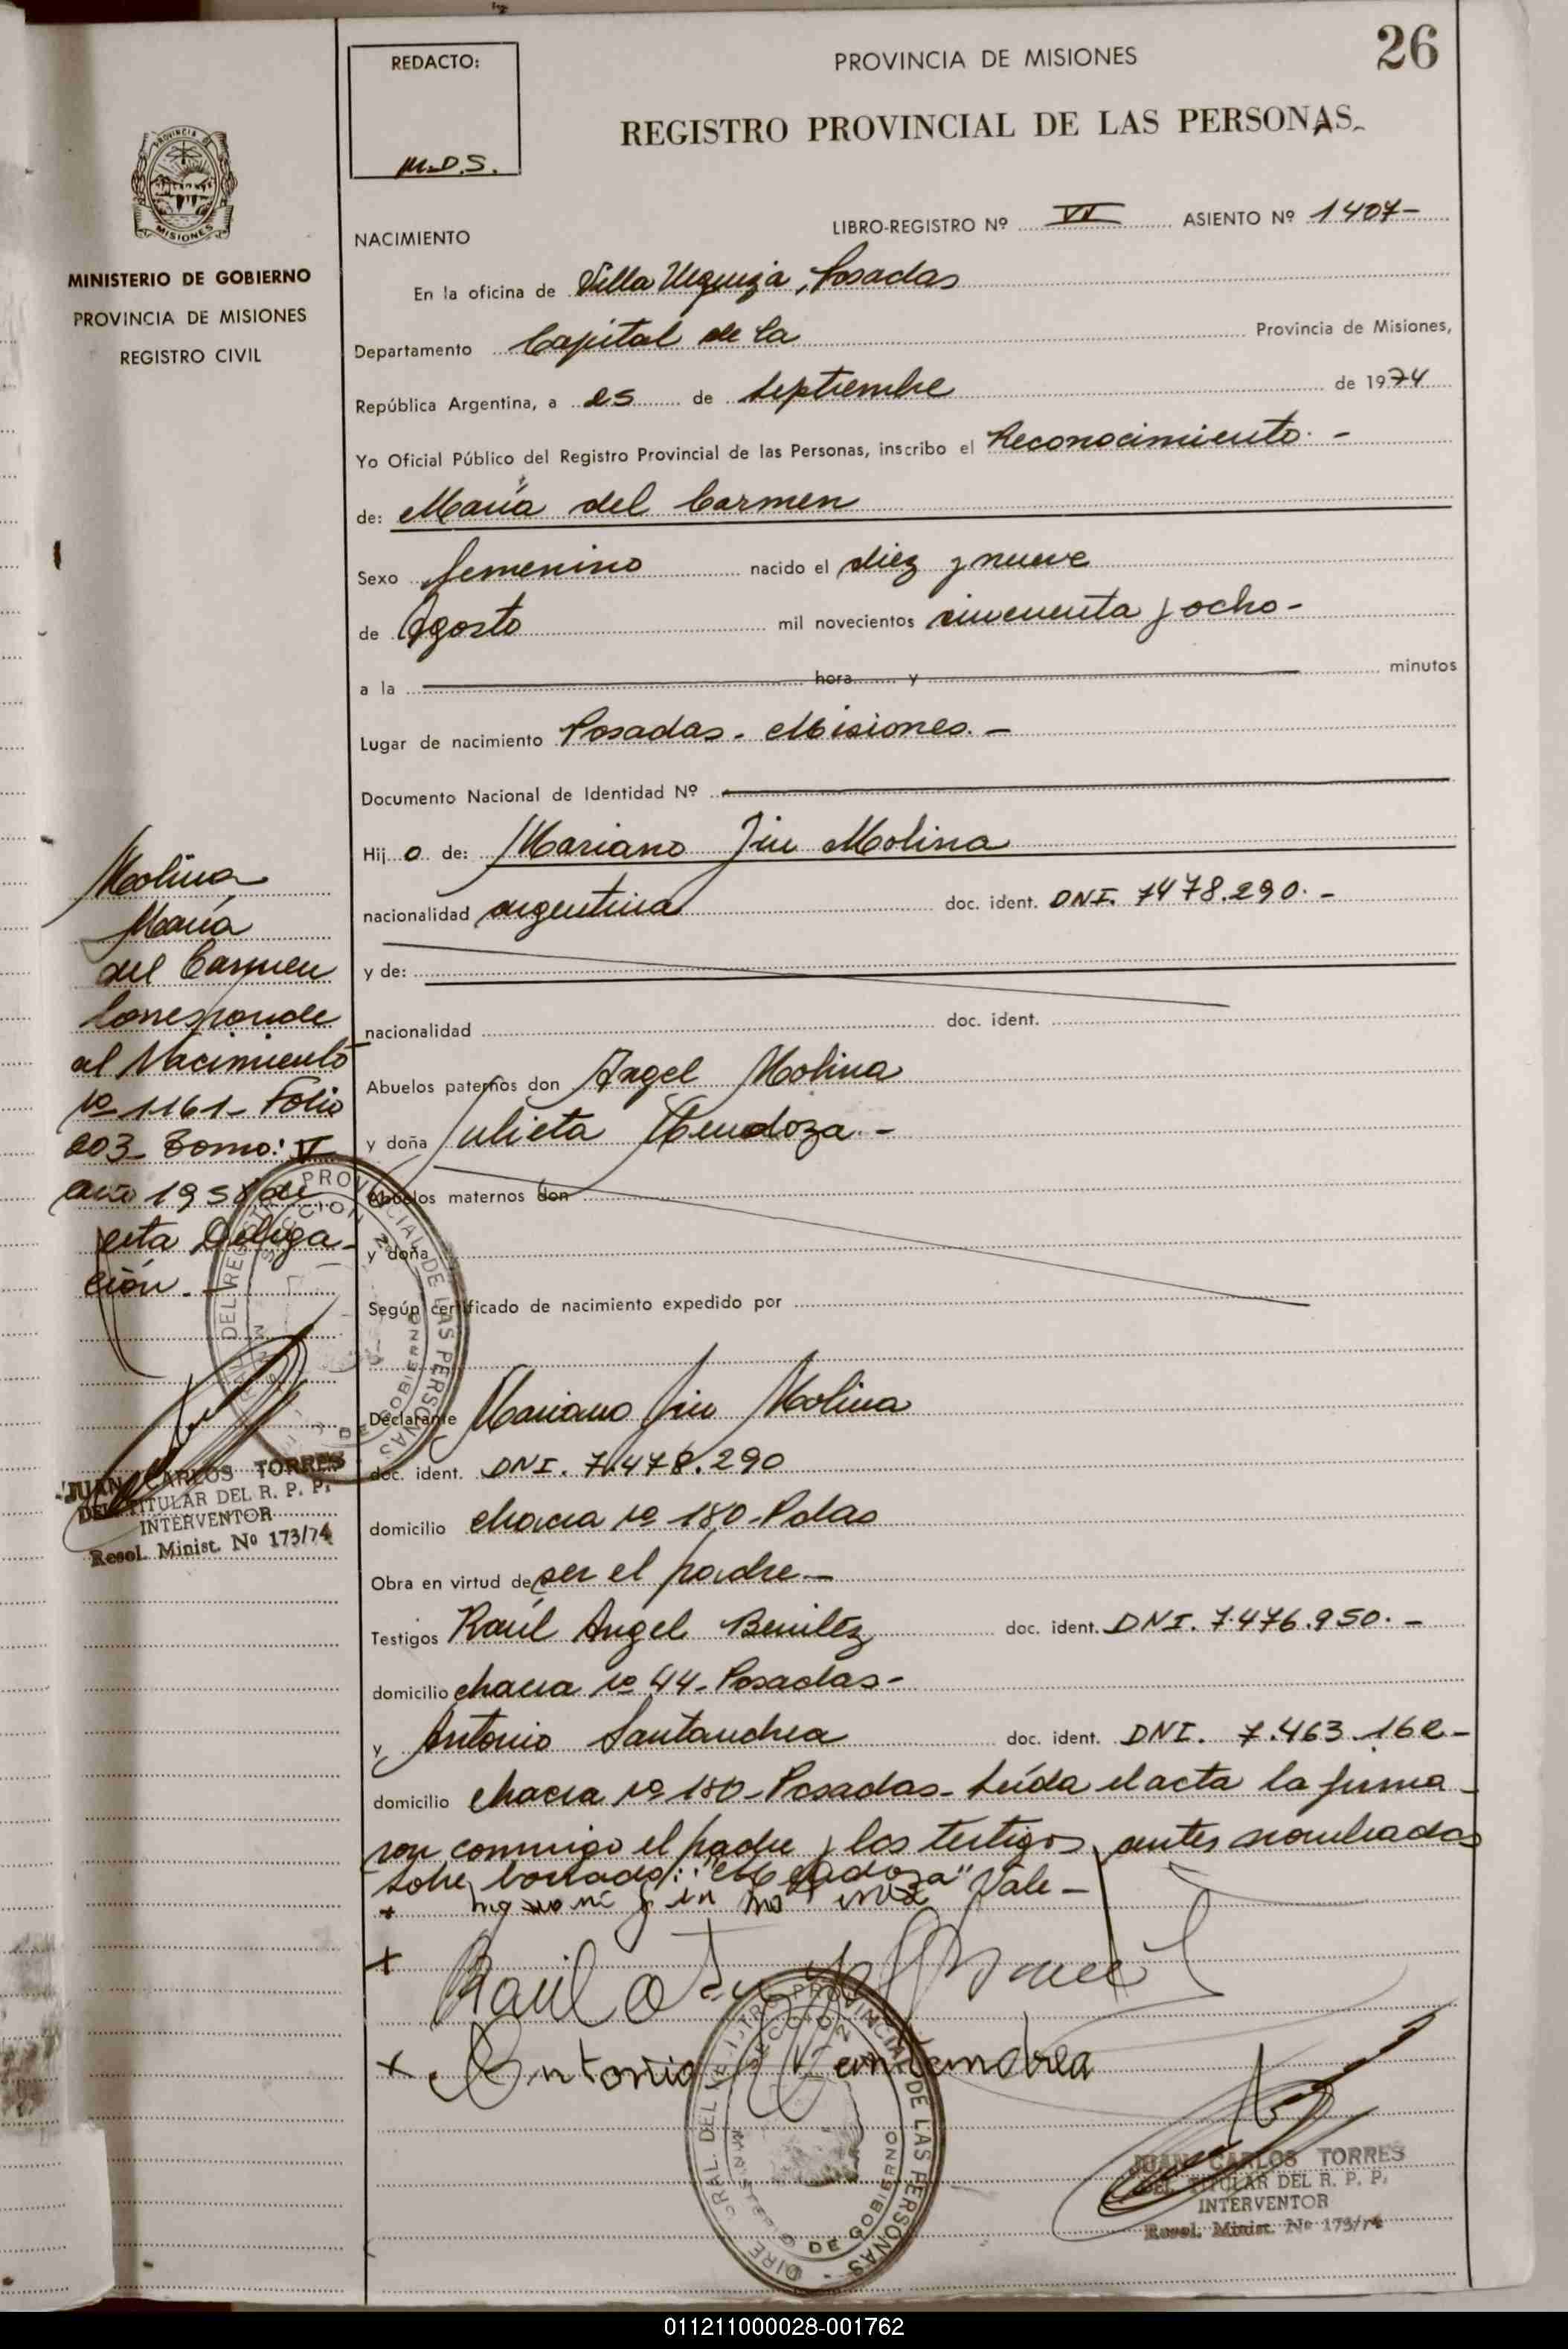 26
REDACTO:
M.D.S.
PROVINCIA DE MISIONES
REGISTRO PROVINCIAL DE LAS PERSONAS
PROVINCIA DE
MISIONES
MINISTERIO DE GOBIERNO
PROVINCIA DE MISIONES
REGISTRO CIVIL
LIBRO-REGISTRO Nº VI ASIENTO Nº 1407-
NACIMIENTO
En la oficina de Villa Urquiza, Posadas
Departamento Capital de la Provincia de Misiones,
República Argentina, a 25 de Septiembre de 1974
Yo Oficial Público del Registro Provincial de las Personas, inscribo el Reconocimiento. -
de: María del Carmen
Sexo femenino nacido el diez y nueve
de Agosto mil novecientos cincuenta y ocho -
a la hora y minutos
Lugar de nacimiento Posadas - Misiones. -
Documento Nacional de Identidad Nº
Hij o de: Mariano Molina
nacionalidad argentina doc. ident. DNI. 7478.290. -
y de:
nacionalidad doc. ident.
Abuelos paternos don Angel Molina
y doña Julieta Mendoza. -
Abuelos maternos don
y doña
Según certificado de nacimiento expedido por
Declarante Mariano Molina
doc. ident. DNI. 7.478.290
domicilio chacra nº 180-Pdas
Obra en virtud de ser el padre -
Testigos Raúl Angel Benitez doc. ident. DNI. 7.476.950. -
domicilio chacra nº 44 - Posadas -
y Antonio Santandrea doc. ident. DNI. 7.463.162 -
domicilio chacra nº 180 - Posadas - Leída el acta la firma
ron conmigo el padre y los testigos antes nombrados
sobre borrado: "Mendoza" Vale -
+
+ Raúl
+ Antonio Santandrea
Molina
María
del Carmen
Corresponde
al Nacimiento
nº 1161 - Folio
203 - Tomo: V
año 1958 de
esta Delega-
ción. -
JUAN CARLOS TORRES
DEL. TITULAR DEL R. P. P.
INTERVENTOR
Resol. Minist. Nº 173/74
DEL REGISTRO PROVINCIAL DE LAS PERSONAS
DE GOBIERNO
DEL REGISTRO PROVINCIAL DE LAS PERSONAS
DE GOBIERNO
JUAN CARLOS TORRES
DEL. TITULAR DEL R. P. P.
INTERVENTOR
Resol. Minist. Nº 173/74
011211000028-001762